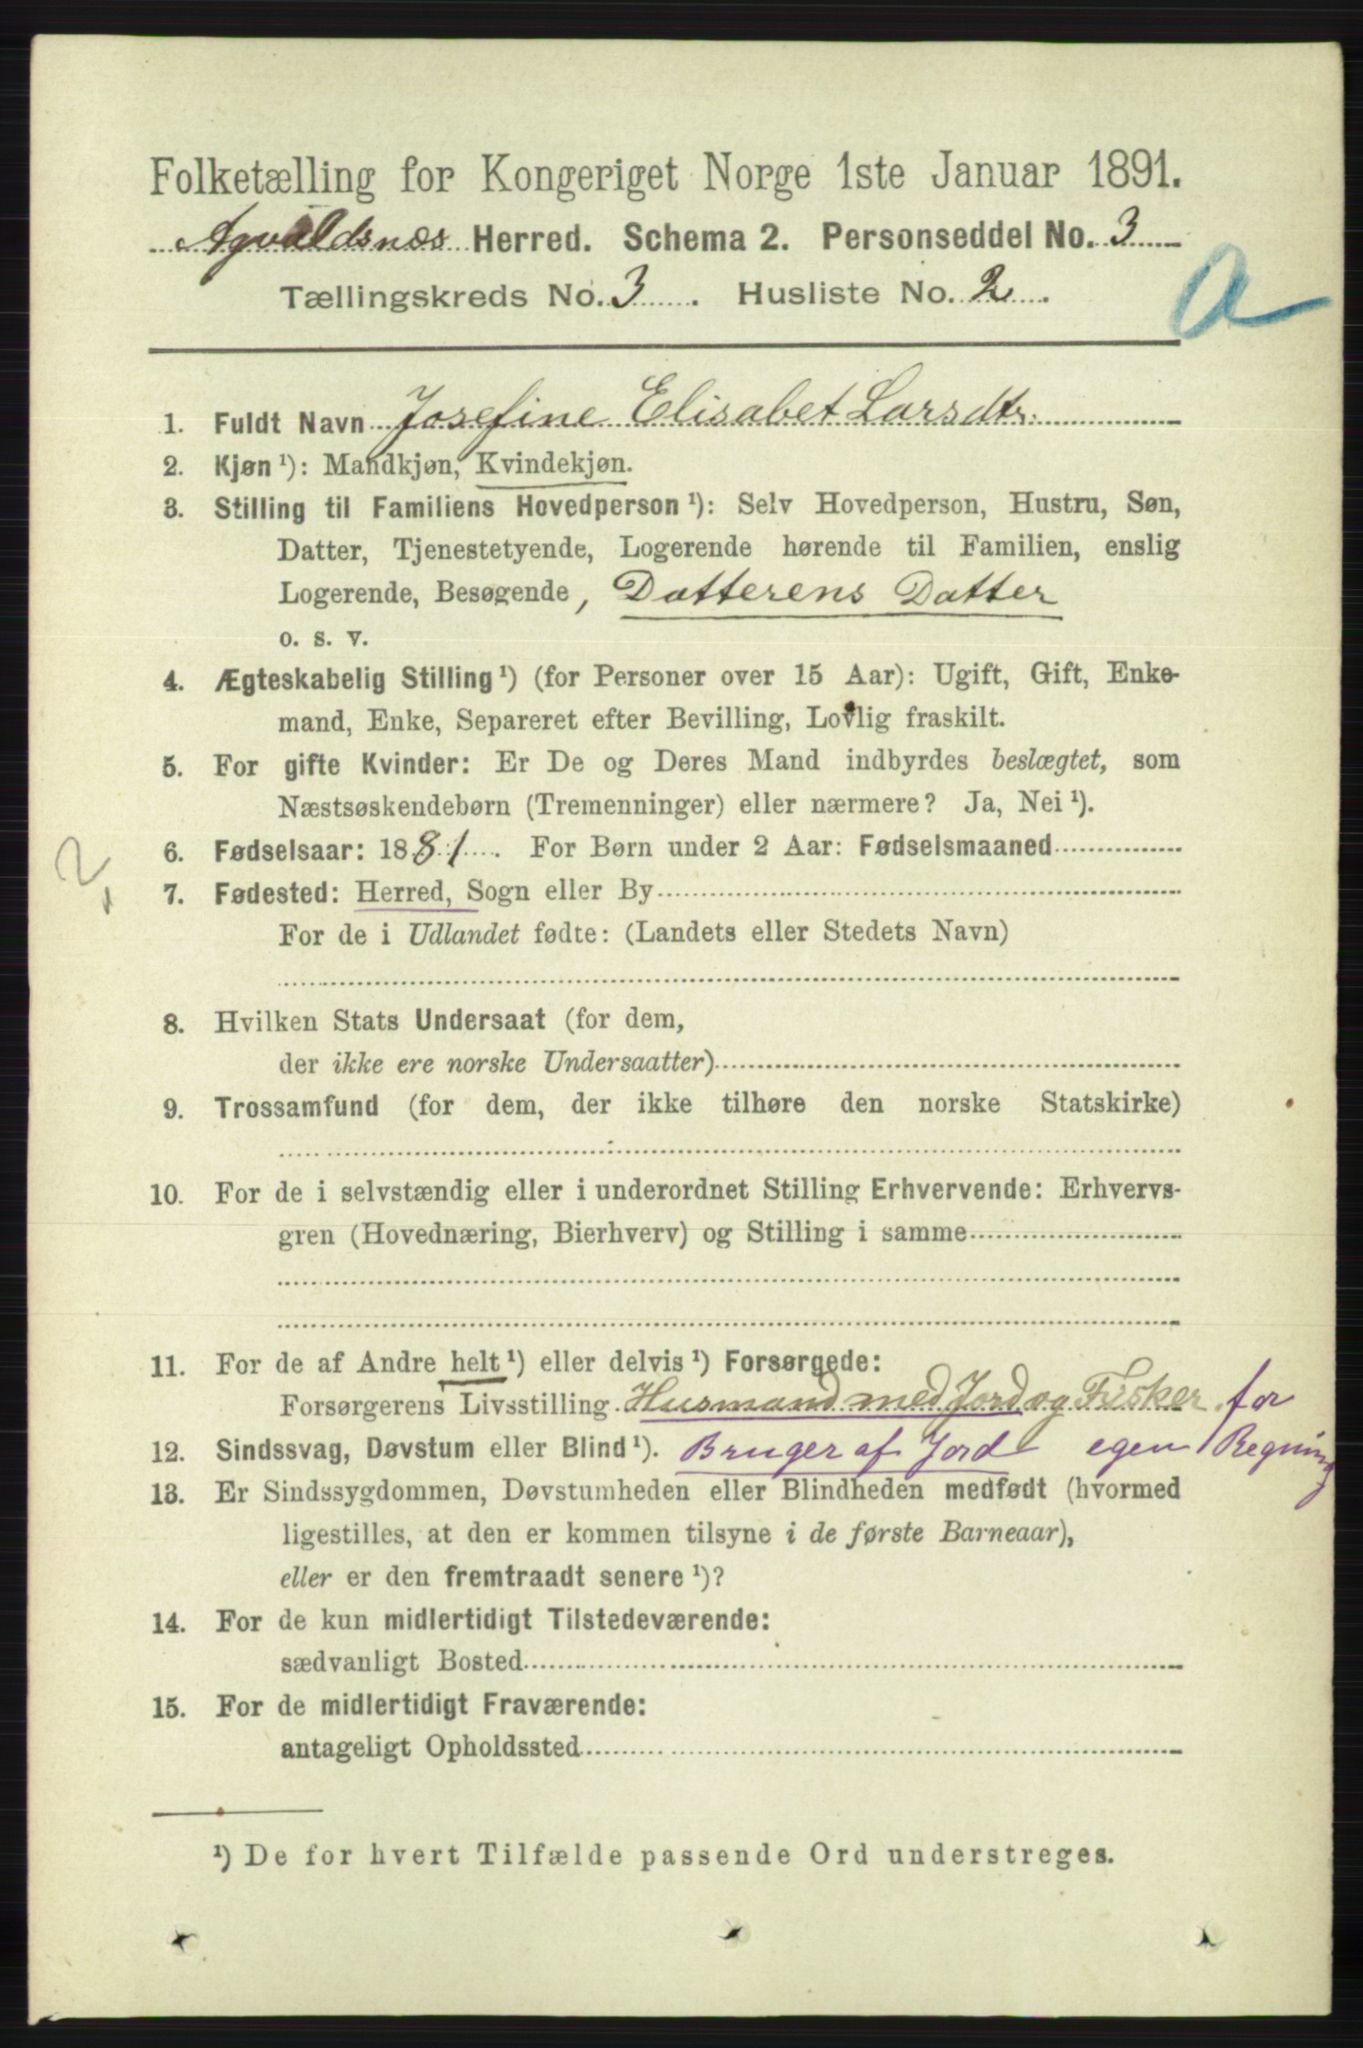 Folketælling for Kongeriget Norge 1ste Januar 1891.
Agvaldsnæs Herred. Schema 2. Personseddel No. 3
Tællingskreds No. 3. Husliste No. 2.
a
1. Fuldt Navn Josefine Elisabet Larsdtr.
2. Kjøn ¹): Mandkjøn, Kvindekjøn.
3. Stilling til Familiens Hovedperson ¹): Selv Hovedperson, Hustru, Søn,
Datter, Tjenestetyende, Logerende hørende til Familien, enslig
Logerende, Besøgende, Datterens Datter
o. s. v.
4. Ægteskabelig Stilling ¹) (for Personer over 15 Aar): Ugift, Gift, Enke-
mand, Enke, Separeret efter Bevilling, Lovlig fraskilt.
5. For gifte Kvinder: Er De og Deres Mand indbyrdes beslægtet, som
Næstsøskendebørn (Tremenninger) eller nærmere? Ja, Nei ¹).
6. Fødselsaar: 1881. For Børn under 2 Aar: Fødselsmaaned
2,
7. Fødested: Herred, Sogn eller By
For de i Udlandet fødte: (Landets eller Stedets Navn)
8. Hvilken Stats Undersaat (for dem,
der ikke ere norske Undersaatter)
9. Trossamfund (for dem, der ikke tilhøre den norske Statskirke)
10. For de i selvstændig eller i underordnet Stilling Erhvervende: Erhvervs-
gren (Hovednæring, Bierhverv) og Stilling i samme
11. For de af Andre helt ¹) eller delvis ¹) Forsørgede:
Forsørgerens Livsstilling Husmand med Jord og Fisker for
12. Sindssvag, Døvstum eller Blind ¹). Bruger af Jord egen Regning
13. Er Sindssygdommen, Døvstumheden eller Blindheden medfødt (hvormed
ligestilles, at den er kommen tilsyne i de første Barneaar),
eller er den fremtraadt senere ¹)?
14. For de kun midlertidigt Tilstedeværende:
sædvanligt Bosted
15. For de midlertidigt Fraværende:
antageligt Opholdssted
¹) De for hvert Tilfælde passende Ord understreges.